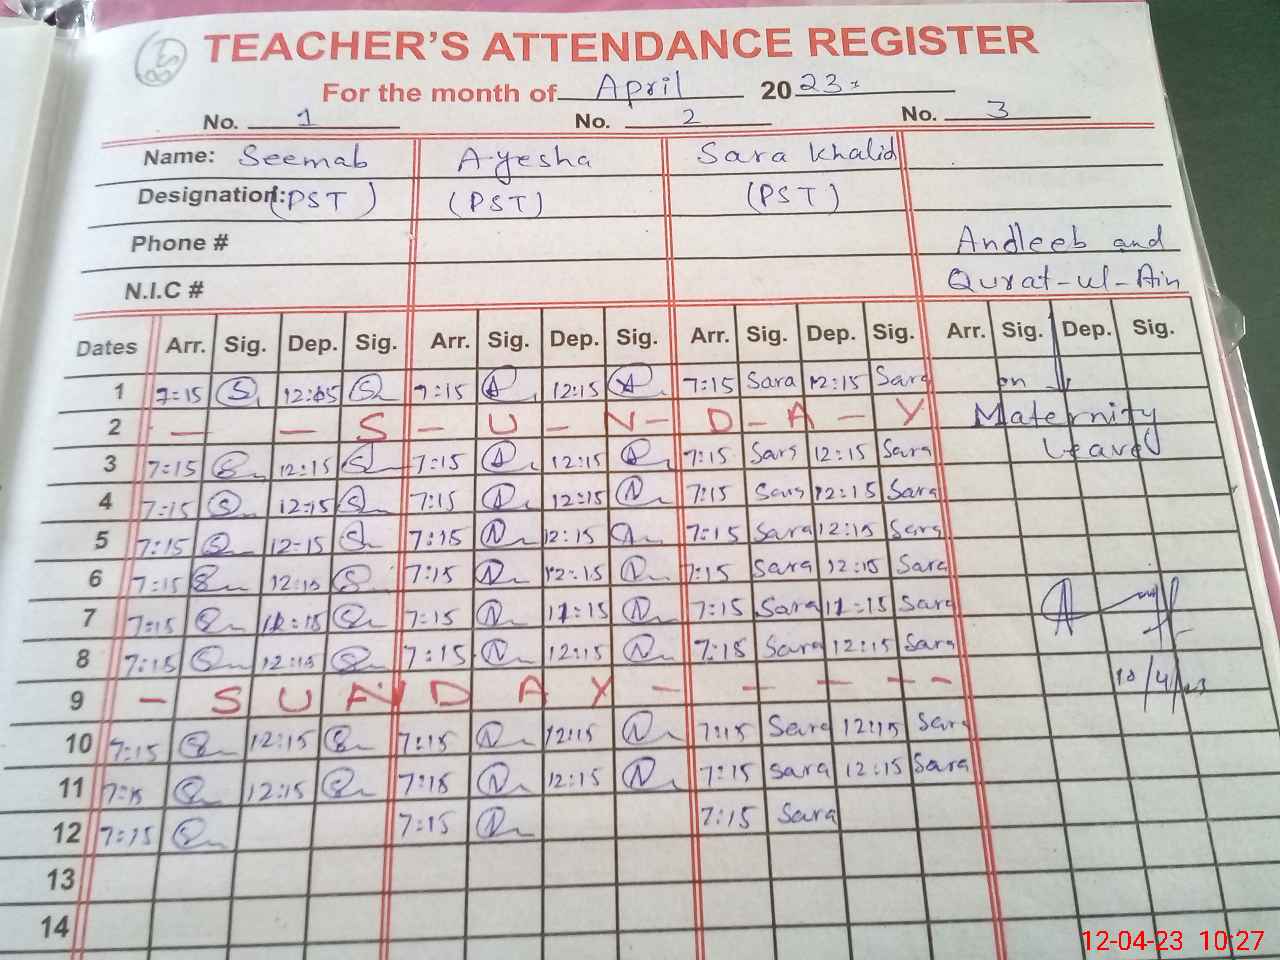 TEACHER'S ATTENDANCE REGISTER
For the month of April 2023
No. 1 No. 2 No. 3
Name: Seemab Ayesha Sara Khalid
Designation: (PST) (PST) (PST)
Phone # Andleeb and
N.I.C # Qurat-ul-Ain
Dates Arr. Sig. Dep. Sig. Arr. Sig. Dep. Sig. Arr. Sig. Dep. Sig. Arr. Sig. Dep. Sig.
1 7:15 S 12:15 S 7:15 A 12:15 A 7:15 Sara 12:15 Sara on
2 - - S - U - N - D - A - Y Maternity
3 7:15 S 12:15 S 7:15 A 12:15 A 7:15 Sara 12:15 Sara Leave
4 7:15 S 12:15 S 7:15 N 12:15 N 7:15 Sara 12:15 Sara
5 7:15 S 12:15 S 7:15 N 12:15 7:15 Sara 12:15 Sara
6 7:15 S 12:15 S 7:15 N 12:15 N 7:15 Sara 12:15 Sara
7 7:15 S 11:15 S 7:15 N 11:15 N 7:15 Sara 11:15 Sara
8 7:15 S 12:15 S 7:15 N 12:15 N 7:15 Sara 12:15 Sara
10/4/23
9 - S U N D A Y - - - - -
10 7:15 S 12:15 S 7:15 N 12:15 N 7:15 Sara 12:15 Sara
11 7:15 S 12:15 S 7:15 N 12:15 N 7:15 Sara 12:15 Sara
12 7:15 S 7:15 N 7:15 Sara
13
14
12-04-23 10:27